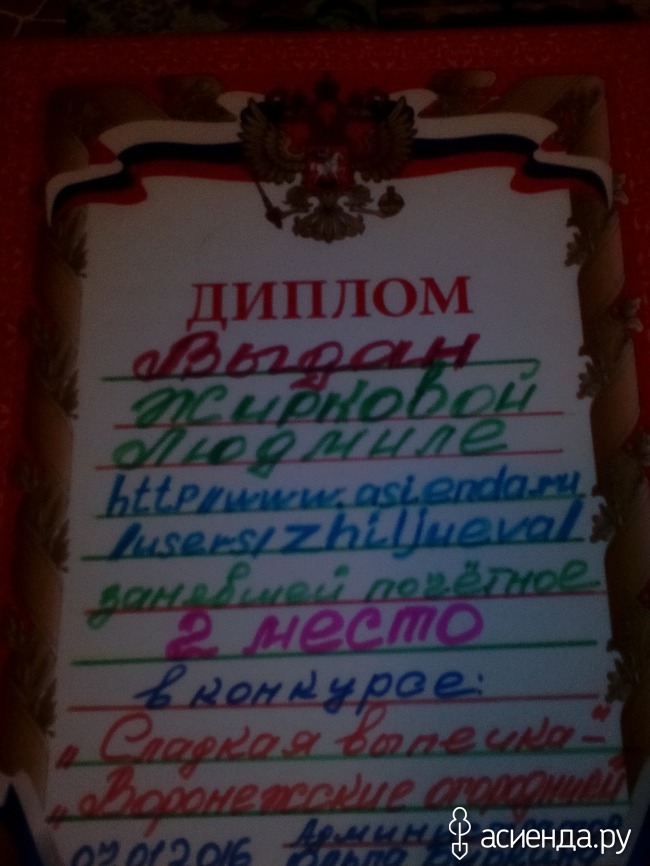 ДИПЛОМ
Выдан
Жирковой
Людмиле
http//www.asienda.ru
/users/zhiljueva/
занявшей почётное
2 место
в конкурсе:
„Сладкая выпечка-"
„Воронежские
07.01.2016
асиенда.ру